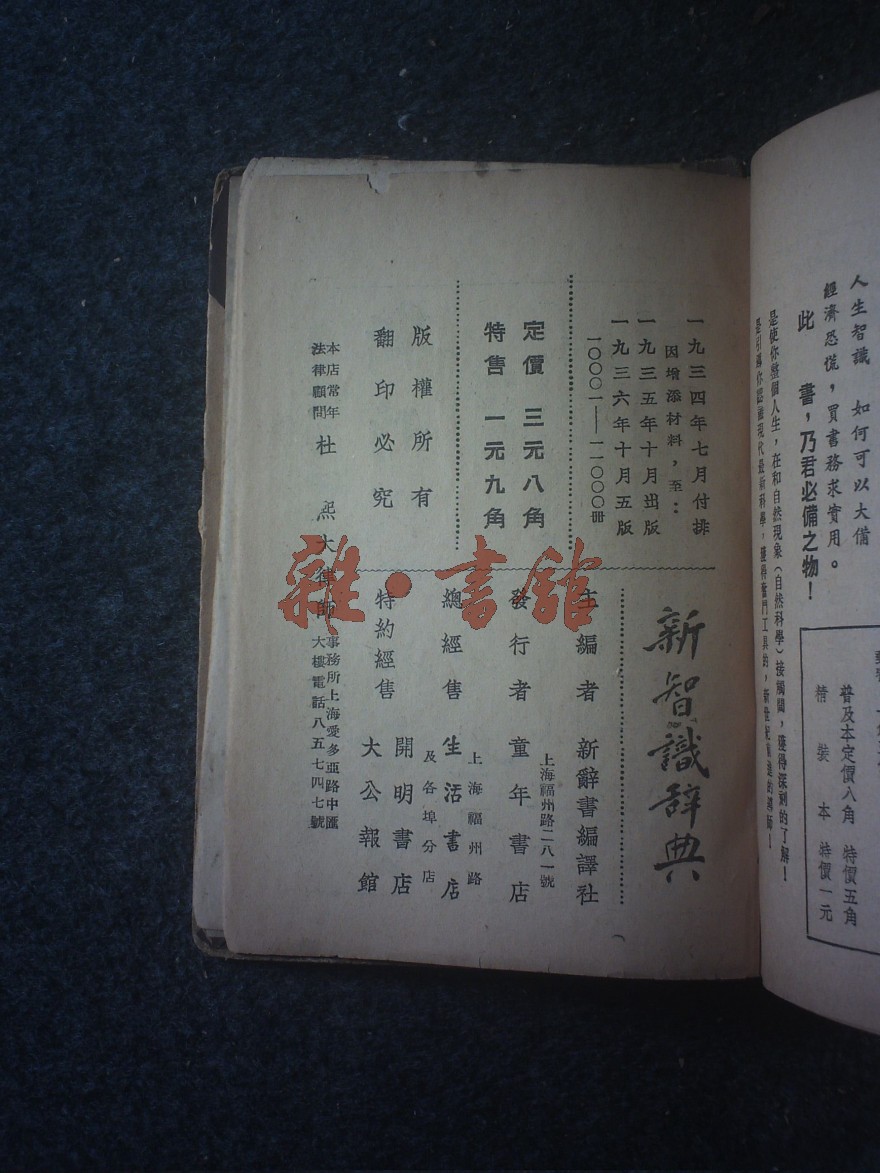 人生智識 如何可以大備
經濟恐慌，買書務求實用。
此書，乃君必備之物！
是使你整個人生，在和自然現象（自然科學）接觸間，獲得深刻的了解！
普及本定價八角 特價五角
精裝本 特價一元
一九三四年七月付排
因增添材料，至：
一九三五年十月出版
一九三六年十月五版
一〇〇〇一——一一〇〇〇冊
定價 三元八角
特售 一元九角
版權所有
翻印必究
本店常年
法律顧問
杜煕大律師
事務所上海愛多亞路中匯
大樓電話八五七四七號
新智識辞典
主編者 新辭書編譯社
上海福州路二八一號
發行者 童年書店
上海福州路
總經售 生活書店
及各埠分店
開明書店
特約經售
大公報館
雜·書館